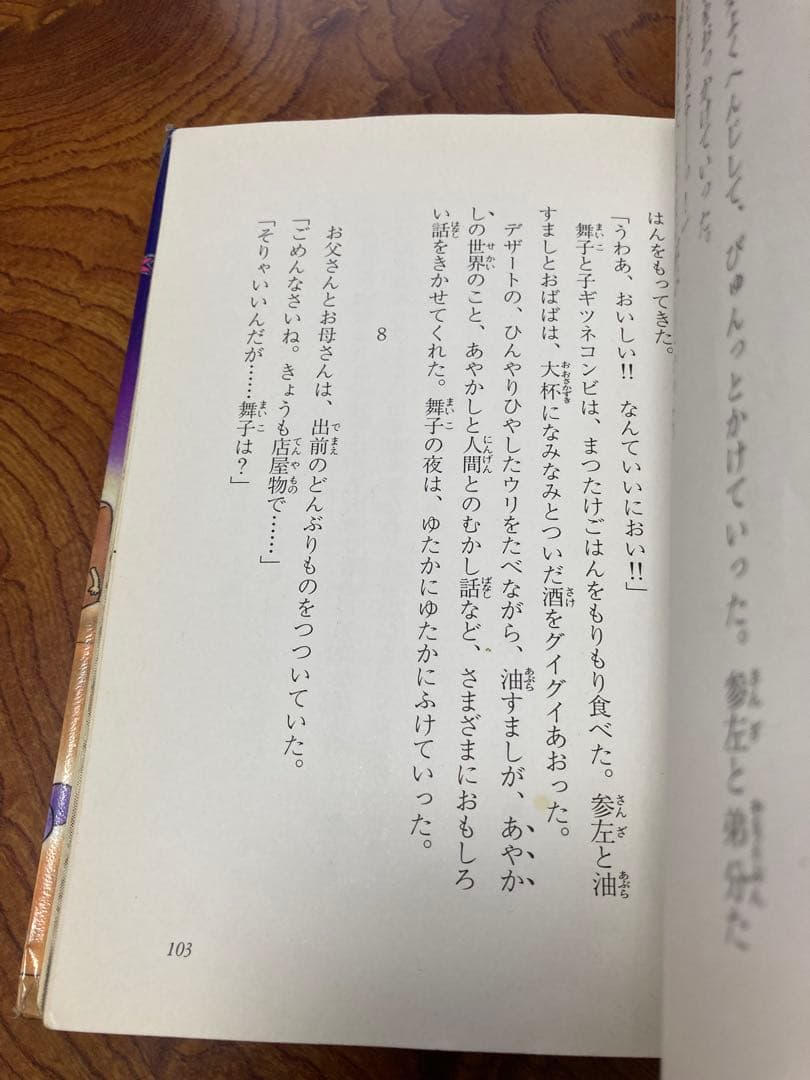 へんじして、ぴゅんっとかけていった。参左と弟分た
はんをもってきた。
「うわあ、おいしい!! なんていいにおい!!」
舞子と子ギツネコンビは、まつたけごはんをもりもり食べた。参左と油
すましとおばばは、大杯になみなみとついだ酒をグイグイあおった。
デザートの、ひんやりひやしたウリをたべながら、油すましが、あやか
しの世界のこと、あやかしと人間とのむかし話など、さまざまにおもしろ
い話をきかせてくれた。舞子の夜は、ゆたかにゆたかにふけていった。
8
お父さんとお母さんは、出前のどんぶりものをつついていた。
「ごめんなさいね。きょうも店屋物で……」
「そりゃいいんだが……舞子は？」
103